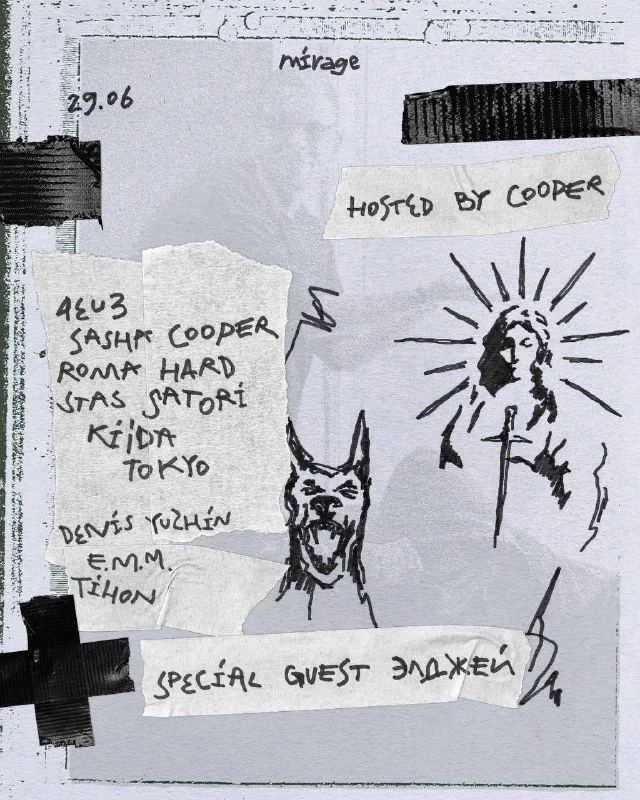 mirage
29.06
HOSTED BY COOPER
SASHA COOPER
ROMA HARD
STAS SATORI
KIJDA
TOKYO
DENIS YUZHIN
E.M.M.
TIHON
SPECIAL GUEST ЭЛДЖЕЙ